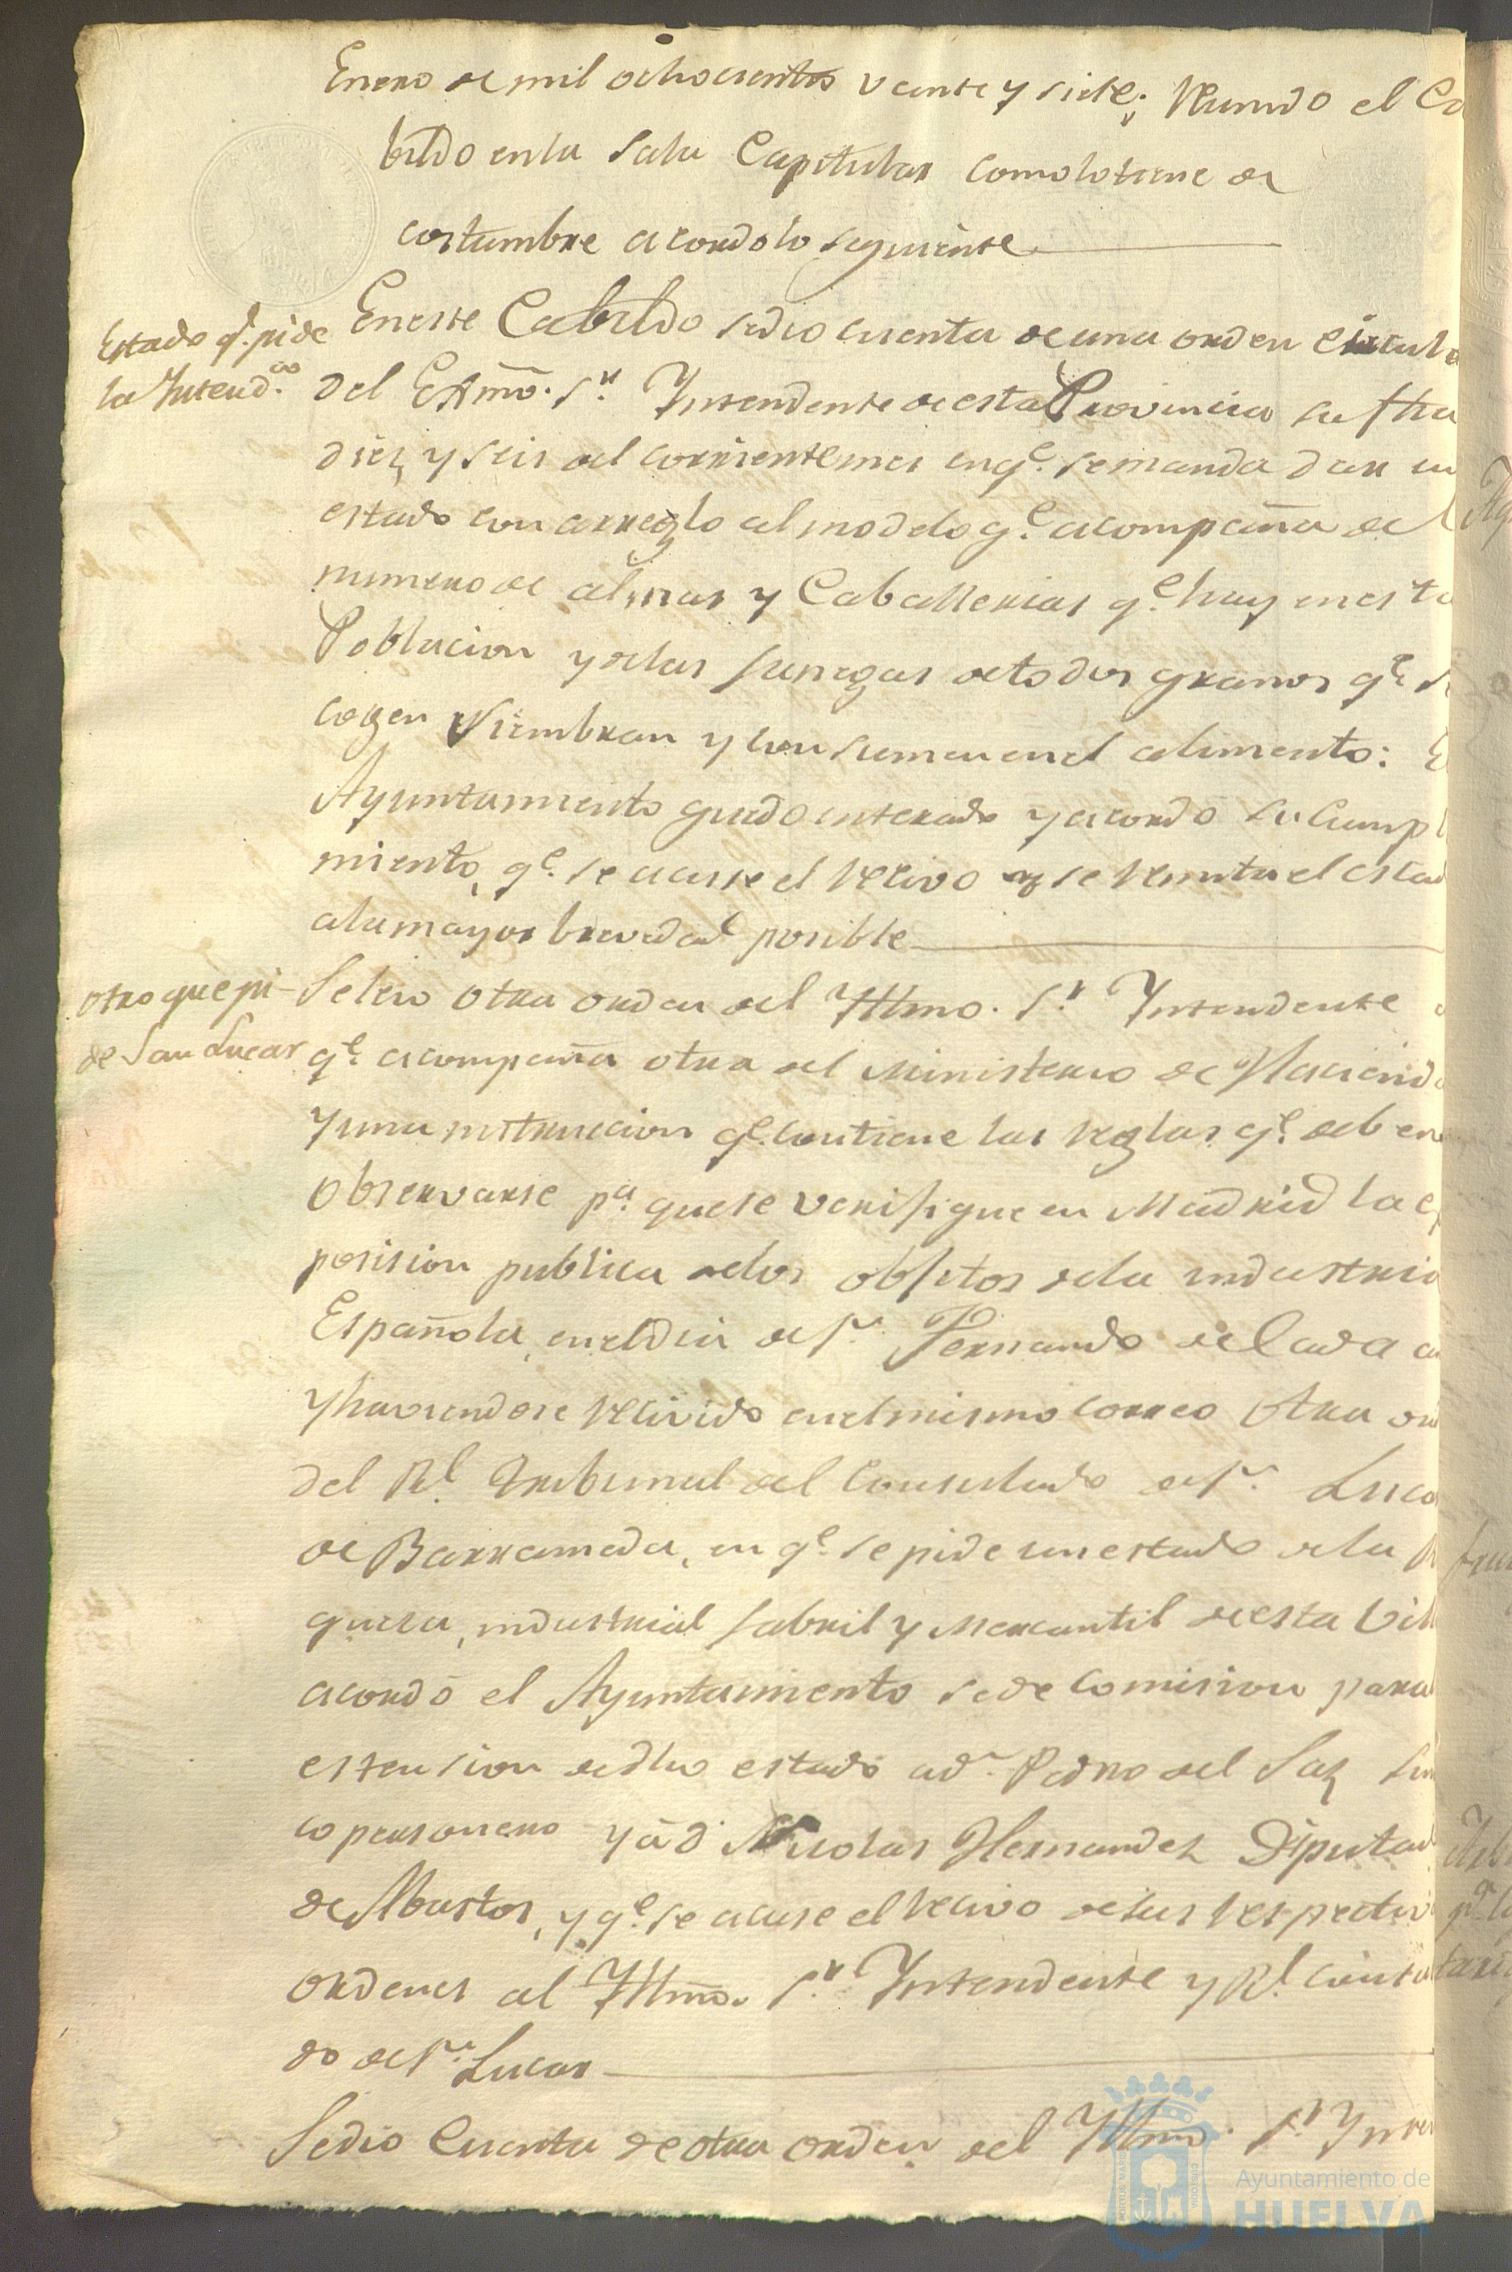 Enero de mil ochocientos veinte y siete; Reunido el Ca
bildo en la Sala Capitular como lo tiene de
costumbre acordo lo siguiente
Estado q.e pide
la Intend.ca
En este Cabildo se dio cuenta de una orden circula
del Exmõ. S.r Yntendente de esta Provincia su fha
diez y seis del corriente mes en q.e se manda dar un
estado con arreglo al modelo q.e acompaña de l
numero de almas y Caballerias q.e hay en esta
Poblacion y delas fanegas de todos granos q.e s
cogen siembran y consumen en el alimento: E
Ayuntamiento quedo enterado y acordó su cumpl
miento, q.e se acuse el Recivo y se Remita el estad
ala mayor brevedad posible
Otro que pi-
de San Lucar
Seleio otra orden del Yllmo. S.r Yntendente
q.e acompaña otra del Ministerio de Haciend
y una instruccion q.e contiene las Reglas q.e deben
observarse p.a que se verifique en Madrid la e
posision publica delos objetos dela industria
Española, en el dia de S.n Fernando de Cada a
y haviendose Recivido en el mismo correo otra or
del R.l Tribunal del Consulado de S.n Luca
de Barrameda, en q.e se pide un estado dela R
queza, industrial fabril y Mercantil de esta Vill
acordó el Ayuntamiento se de Comision para
estension de dho estado a d.n Pedro del Saz Sin
co personero y á d.n Nicolas Hernandez Diputad
de Abastos, y q.e se acuse el Recivo de sus Respectiv
ordenes al Yllmõ. S.r Yntendente y R.l Consula
do de S.n Lucar
Sedio Cuenta de otra orden del Yllmõ. S.r Ynten
Ayuntamiento de
HUELVA